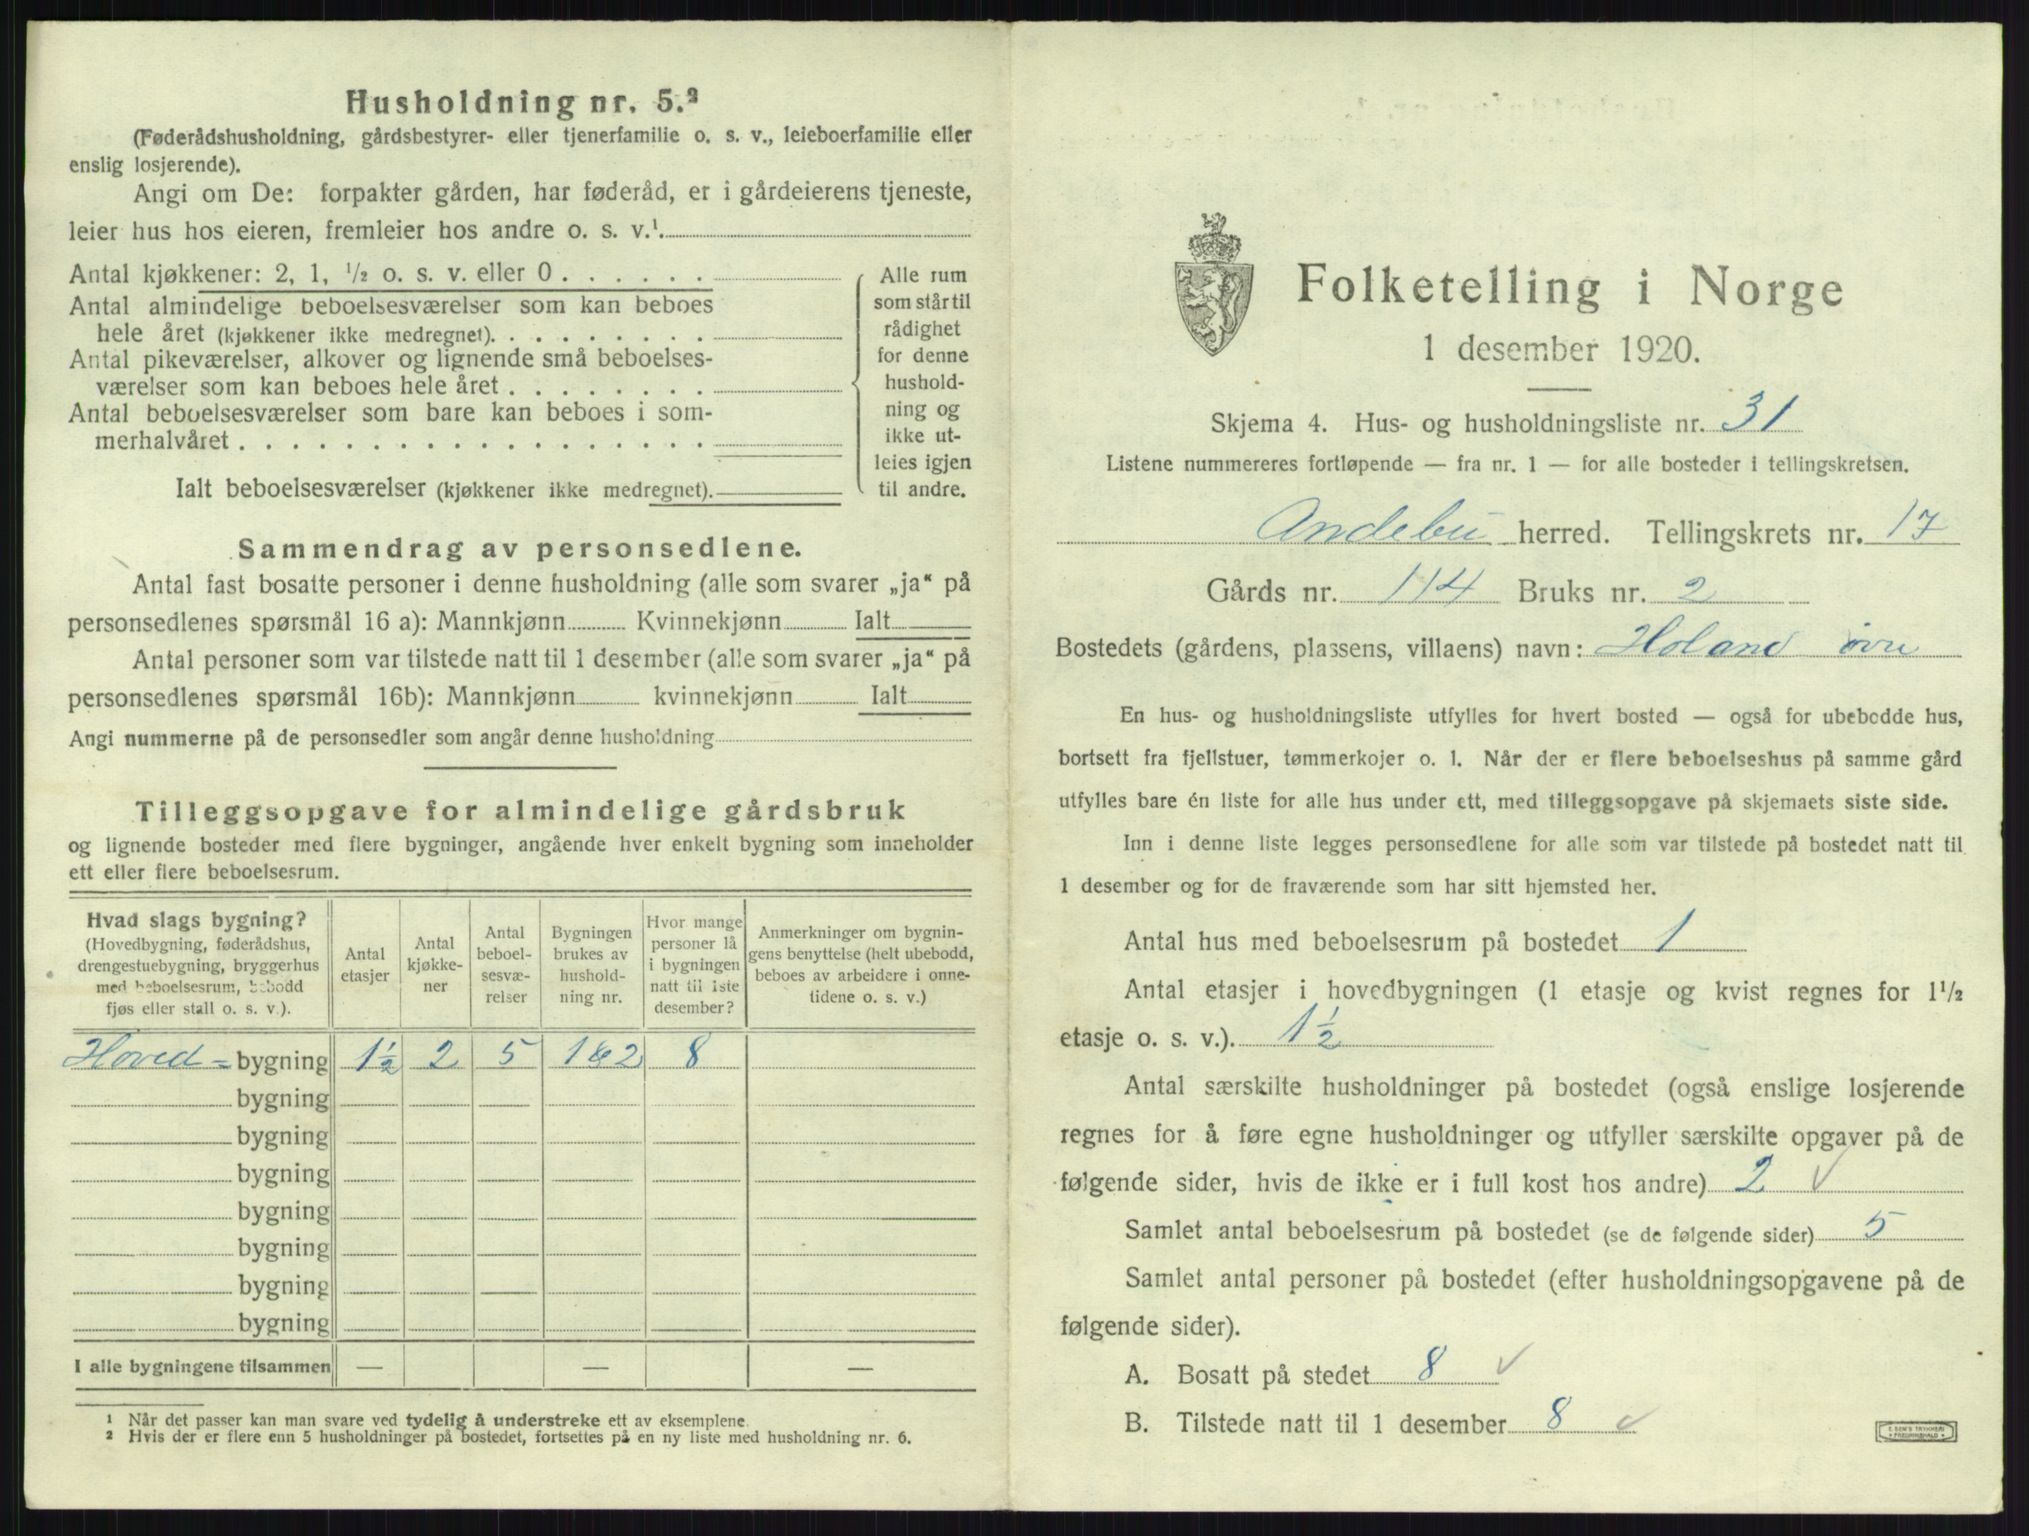 Husholdning nr. 5.²
(Føderådshusholdning, gårdsbestyrer- eller tjenerfamilie o. s. v., leieboerfamilie eller
enslig losjerende).
Angi om De: forpakter gården, har føderåd, er i gårdeierens tjeneste,
leier hus hos eieren, fremleier hos andre o. s. v.¹
Antal kjøkkener: 2, 1, ½ o. s. v. eller 0 . . . . . .
Antal almindelige beboelsesværelser som kan beboes
hele året (kjøkkener ikke medregnet). . . . . . . . .
Antal pikeværelser, alkover og lignende små beboelses-
værelser som kan beboes hele året . . . . . . . .
Antal beboelsesværelser som bare kan beboes i som-
merhalvåret . . . . . . . . . . . . . . . . . .
Ialt beboelsesværelser (kjøkkener ikke medregnet).
Alle rum
som står til
rådighet
for denne
hushold-
ning og
ikke ut-
leies igjen
til andre.
Sammendrag av personsedlene.
Antal fast bosatte personer i denne husholdning (alle som svarer „ja“ på
personsedlenes spørsmål 16 a): Mannkjønn Kvinnekjønn Ialt
Antal personer som var tilstede natt til 1 desember (alle som svarer „ja“ på
personsedlenes spørsmål 16b): Mannkjønn kvinnekjønn Ialt
Angi nummerne på de personsedler som angår denne husholdning
Tilleggsopgave for almindelige gårdsbruk
og lignende bosteder med flere bygninger, angående hver enkelt bygning som inneholder
ett eller flere beboelsesrum.
Hvad slags bygning?
(Hovedbygning, føderådshus,
drengestuebygning, bryggerhus
med beboelsesrum, bebodd
fjøs eller stall o. s. v.).
Antal
etasjer
Antal
kjøkke-
ner
Antal
beboel-
sesvæ-
relser
Bygningen
brukes av
hushold-
ning nr.
Hvor mange
personer lå
i bygningen
natt til 1ste
desember?
Anmerkninger om bygnin-
gens benyttelse (helt ubebodd,
beboes av arbeidere i onne-
tidene o. s. v.)
Hoved-bygning 1½ 2 5 1&2 8
bygning
bygning
bygning
bygning
bygning
bygning
bygning
I alle bygningene tilsammen — — —
¹ Når det passer kan man svare ved tydelig å understreke ett av eksemplene.
² Hvis der er flere enn 5 husholdninger på bostedet, fortsettes på en ny liste med husholdning nr. 6.
Folketelling i Norge
1 desember 1920.
Skjema 4. Hus- og husholdningsliste nr. 31
Listene nummereres fortløpende — fra nr. 1 — for alle bosteder i tellingskretsen.
Andebu herred. Tellingskrets nr. 17
Gårds nr. 114 Bruks nr. 2
Bostedets (gårdens, plassens, villaens) navn: Holand øvre
En hus- og husholdningsliste utfylles for hvert bosted — også for ubebodde hus,
bortsett fra fjellstuer, tømmerkojer o. l. Når der er flere beboelseshus på samme gård
utfylles bare én liste for alle hus under ett, med tilleggsopgave på skjemaets siste side.
Inn i denne liste legges personsedlene for alle som var tilstede på bostedet natt til
1 desember og for de fraværende som har sitt hjemsted her.
Antal hus med beboelsesrum på bostedet 1
Antal etasjer i hovedbygningen (1 etasje og kvist regnes for 1½
etasje o. s. v.). 1½
Antal særskilte husholdninger på bostedet (også enslige losjerende
regnes for å føre egne husholdninger og utfyller særskilte opgaver på de
følgende sider, hvis de ikke er i full kost hos andre) 2 ✓
Samlet antal beboelsesrum på bostedet (se de følgende sider) 5
Samlet antal personer på bostedet (efter husholdningsopgavene på de
følgende sider).
A. Bosatt på stedet 8 ✓
B. Tilstede natt til 1 desember 8 ✓